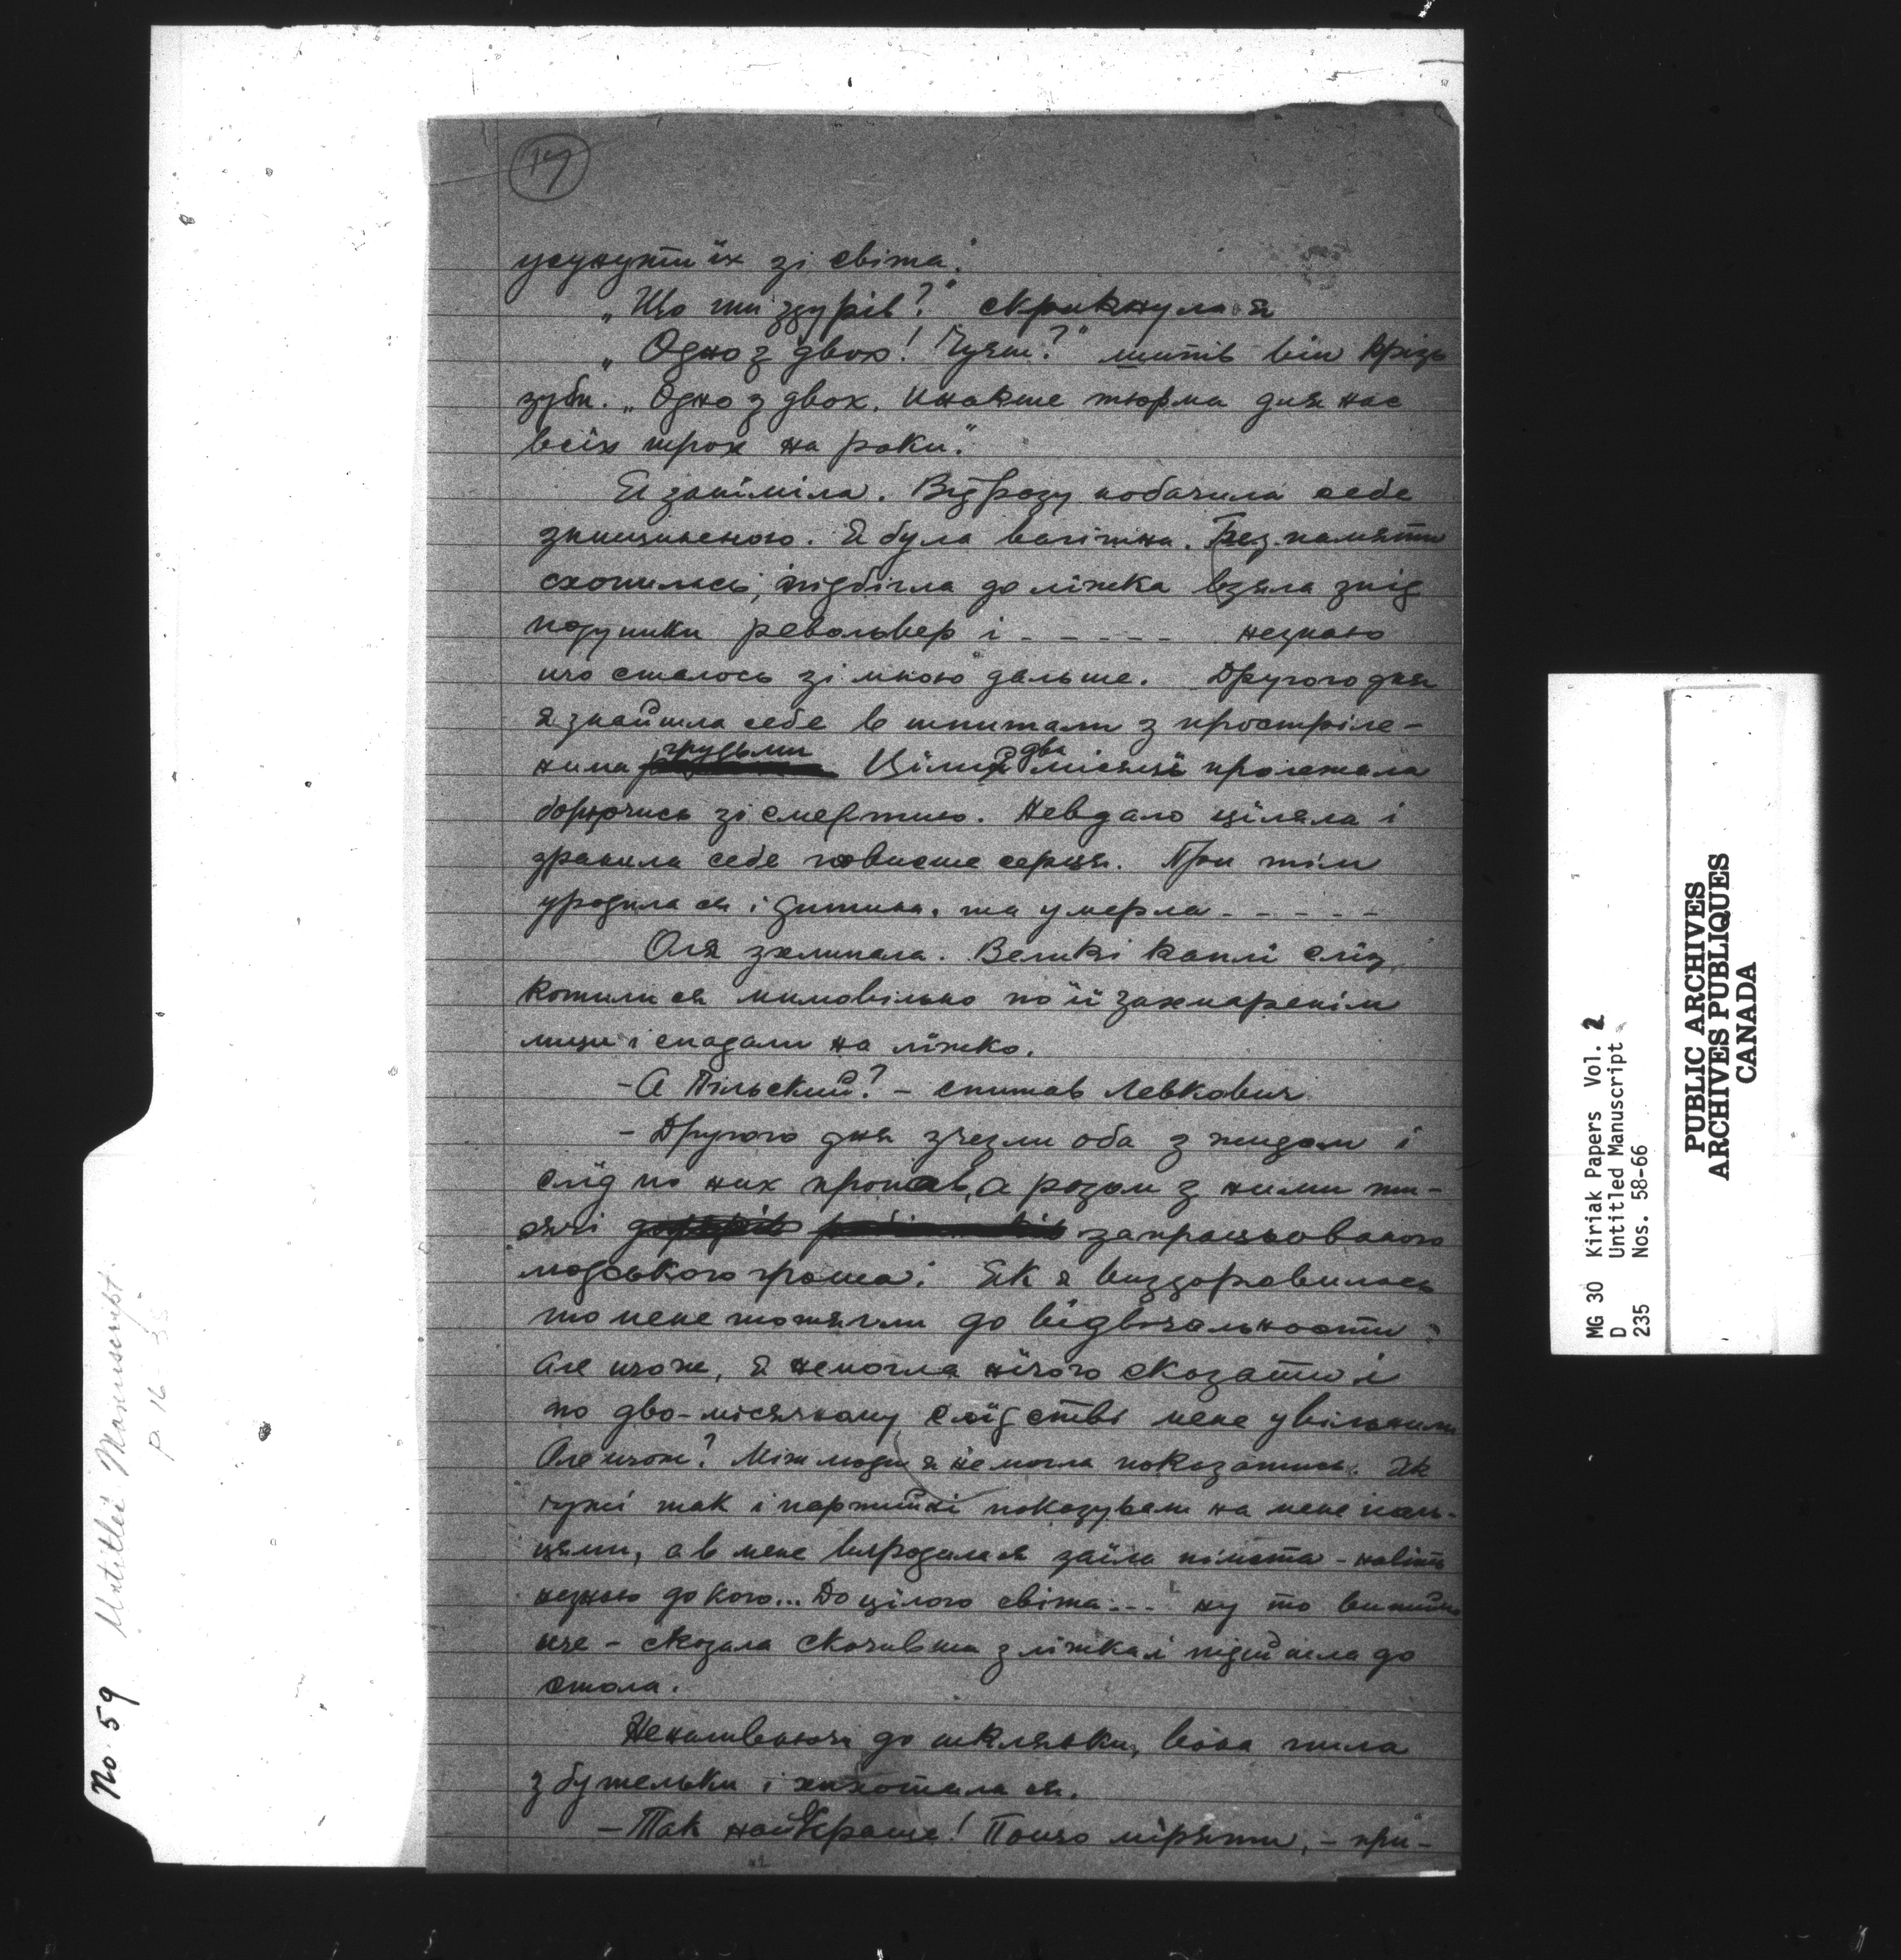 17
усунути їх зі світа."
„Що ти здурів?" скрикнула я
„Одно з двох! Чуєш?" шипів він крізь
зуби. „Одно з двох. Инакше тюрма для нас
всіх трох на роки."
Я заніміла. Відразу побачила себе
знищеною. Я була вагітна. Без памяти
схопилась, підбігла до ліжка взяла зпід
подушки револьвер і - - - - - незнаю
що сталось зі мною дальше. Другого дня
я знайшла себе в шпитали з простріле-
ними грудьми Цілих два місяці пролежала
борючись зі смертию. Невдало ціляла і
зранила себе повисше серця. При тім
уродилася і дитина, та умерла - - - - -
Оля зхлипала. Великі каплі сліз
котилися мимовільно по її захмаренім
лици і спадали на ліжко.
- А Пільский? - спитав Левкович
- Другого дня зчезли оба з жидом і
слід по них пропав, а разом з ними ти-
сячі запрацьованого
людського гроша. Як я виздоровилась
то мене тягали до відвічальности
Але щож, я немогла нічого сказати і
по дво-місячному слідстві мене увільнили
Але щож? Між люди я немогла показатись. Як
чужі так і партийні показували на мене паль-
цями, а в мене вродилася заїла пімста - навіть
незнаю до кого... До цілого світа... ну то випиймо
ще - сказала скочивши з ліжка і підійшла до
стола.
Неналиваючи до шклянки, вона пила
з бутельки і хихотилася.
- Так найкраще! Пощо міряти, - при-
No. 59 Untitled Manuscript
P. 16-35
MG 30 Kiriak Papers Vol. 2
D Untitled Manuscript
235 Nos. 58-66
PUBLIC ARCHIVES
ARCHIVES PUBLIQUES
CANADA